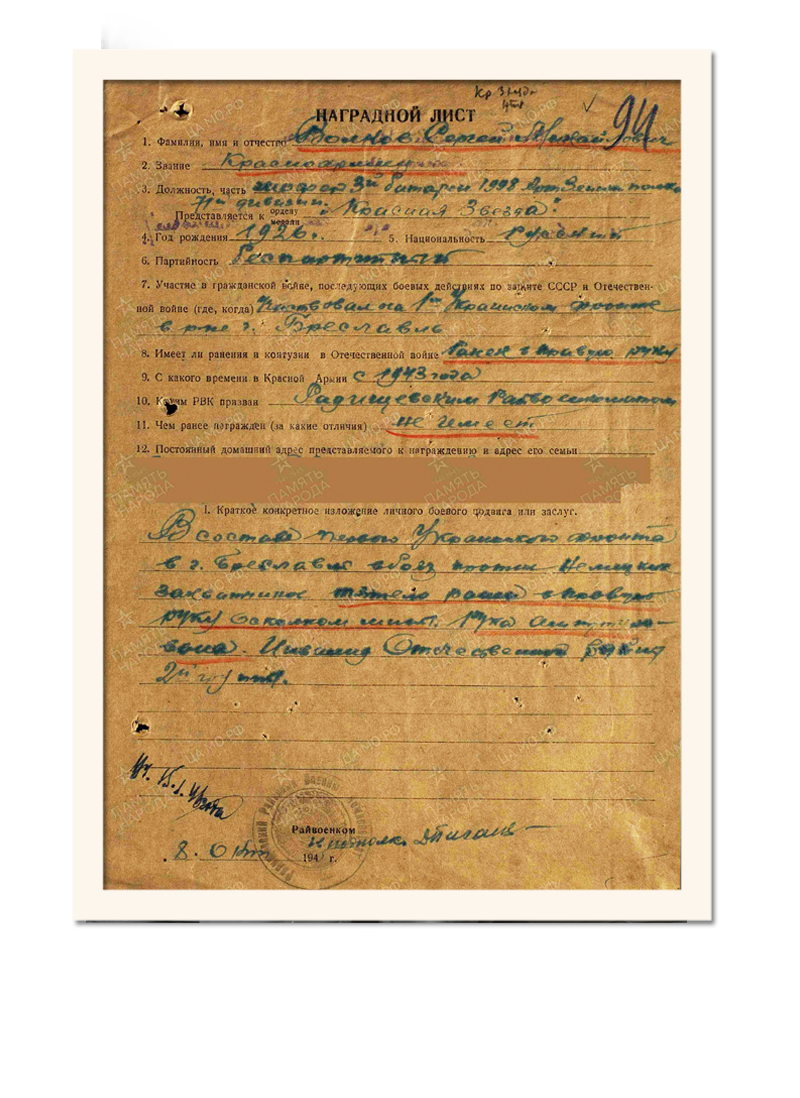 Кр Звезда
94
НАГРАДНОЙ ЛИСТ
1. Фамилия, имя и отчество Волков Сергей Михайлович
2. Звание Красноармеец
3. Должность, часть шофер 3й батареи 1998 Арт Зенитн полка
71й дивизии.
Представляется к ордену медали "Красная Звезда".
4. Год рождения 1926 г. 5. Национальность Русский
6. Партийность Беспартийный
7. Участие в гражданской войне, последующих боевых действиях по защите СССР и Отечествен-
ной войне (где, когда) на 1м Украинском фронте
в р-не г. Бреславль
8. Имеет ли ранения и контузии в Отечественной войне Ранен в правую руку
9. С какого времени в Красной Армии с 1943 года
10. Каким РВК призван Радищевским Райвоенкоматом
11. Чем ранее награжден (за какие отличия) не имеет
12. Постоянный домашний адрес представляемого к награждению и адрес его семьи
I. Краткое конкретное изложение личного боевого подвига или заслуг.
В составе первого Украинского фронта
в г. Бреславле в боях против Немецких
захватчиков тяжело ранен в правую
руку осколком мины. Рука ампутиро-
вана. Инвалид Отечественной войны
2й группы.
Райвоенком
8. 194 г.
ПАМЯТЬ НАРОДА
ЦАМО.РФ